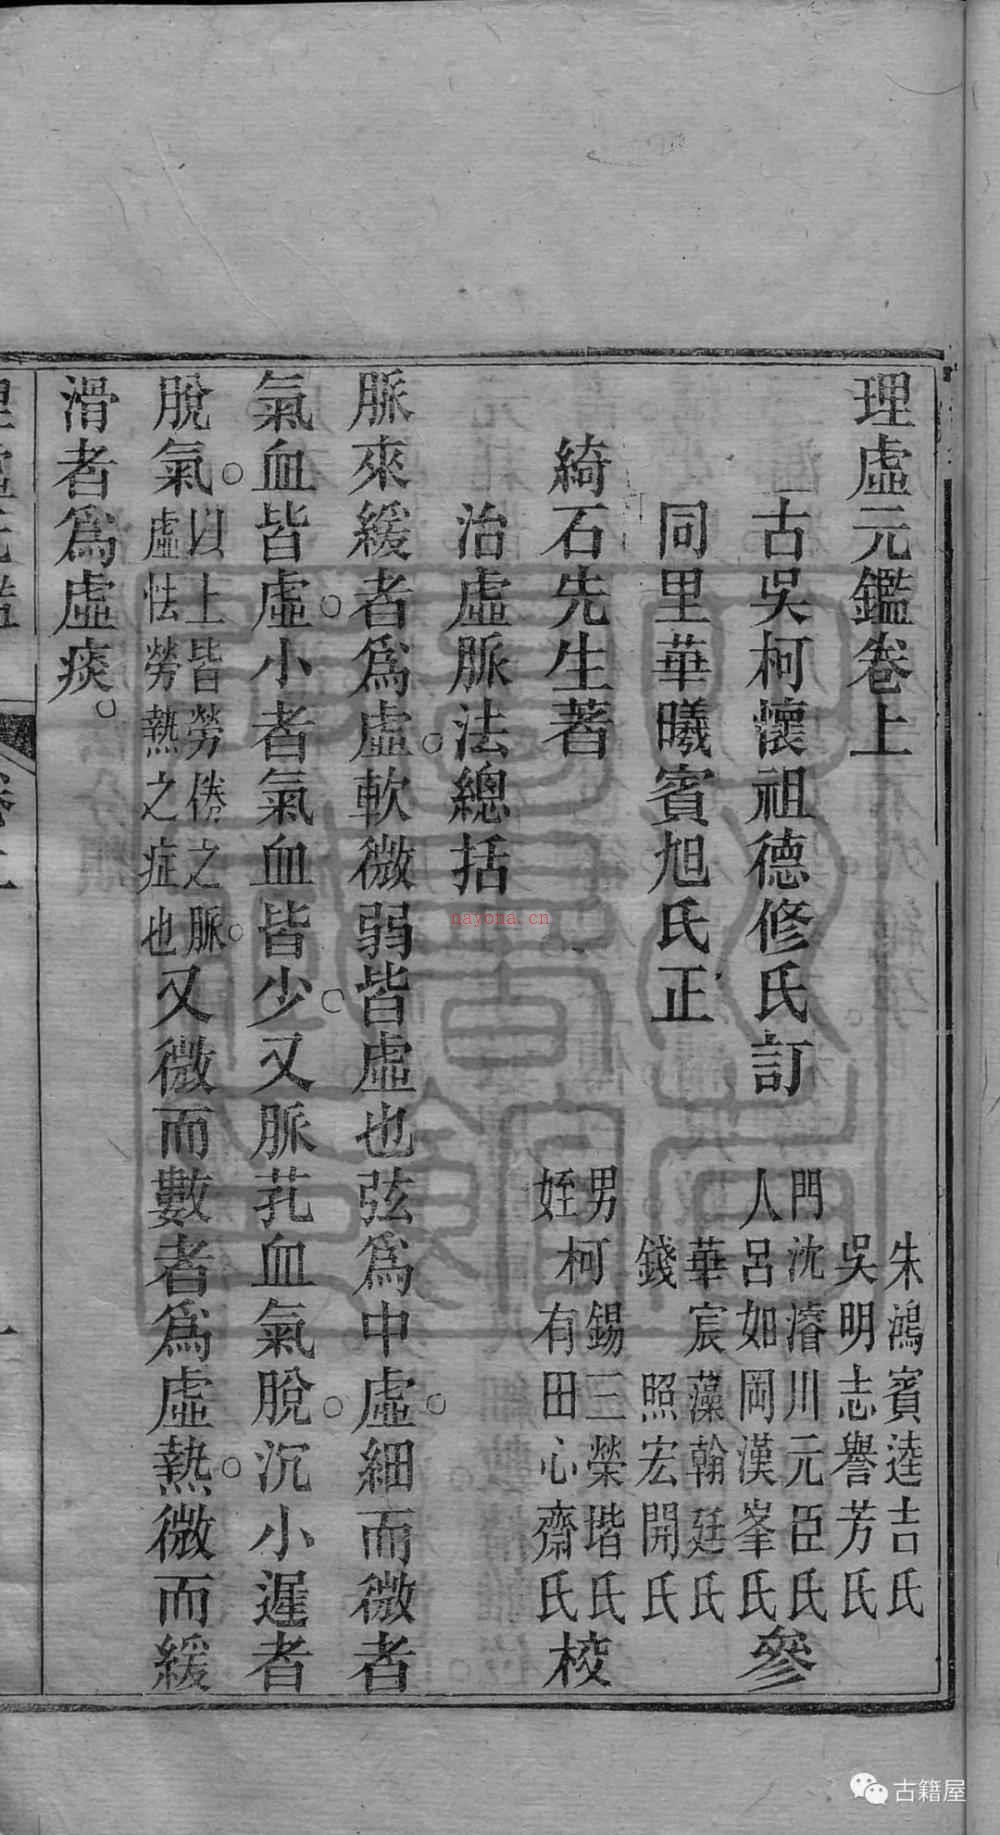 理虛元鑑卷上
朱鴻賓逵吉氏
吳明志譽芳氏
古吳柯懷祖德修氏訂
門沈濬川元臣氏
人呂如岡漢峯氏參
同里華曦賓旭氏正
華宸藻翰廷氏
錢照宏開氏
綺石先生著
男柯錫三榮堦氏
姪有田心齋氏校
治虛脈法總括
脈來緩者爲虛。軟微弱皆虛也弦爲中虛。細而微者
氣血皆虛。小者氣血皆少。又脈芤血氣脫。沉小遲者
脫氣。以上皆勞倦之脈。虛怯勞熱之症也又微而數者爲虛熱。微而緩
滑者爲虛痰。
nayona.cn
古籍屋